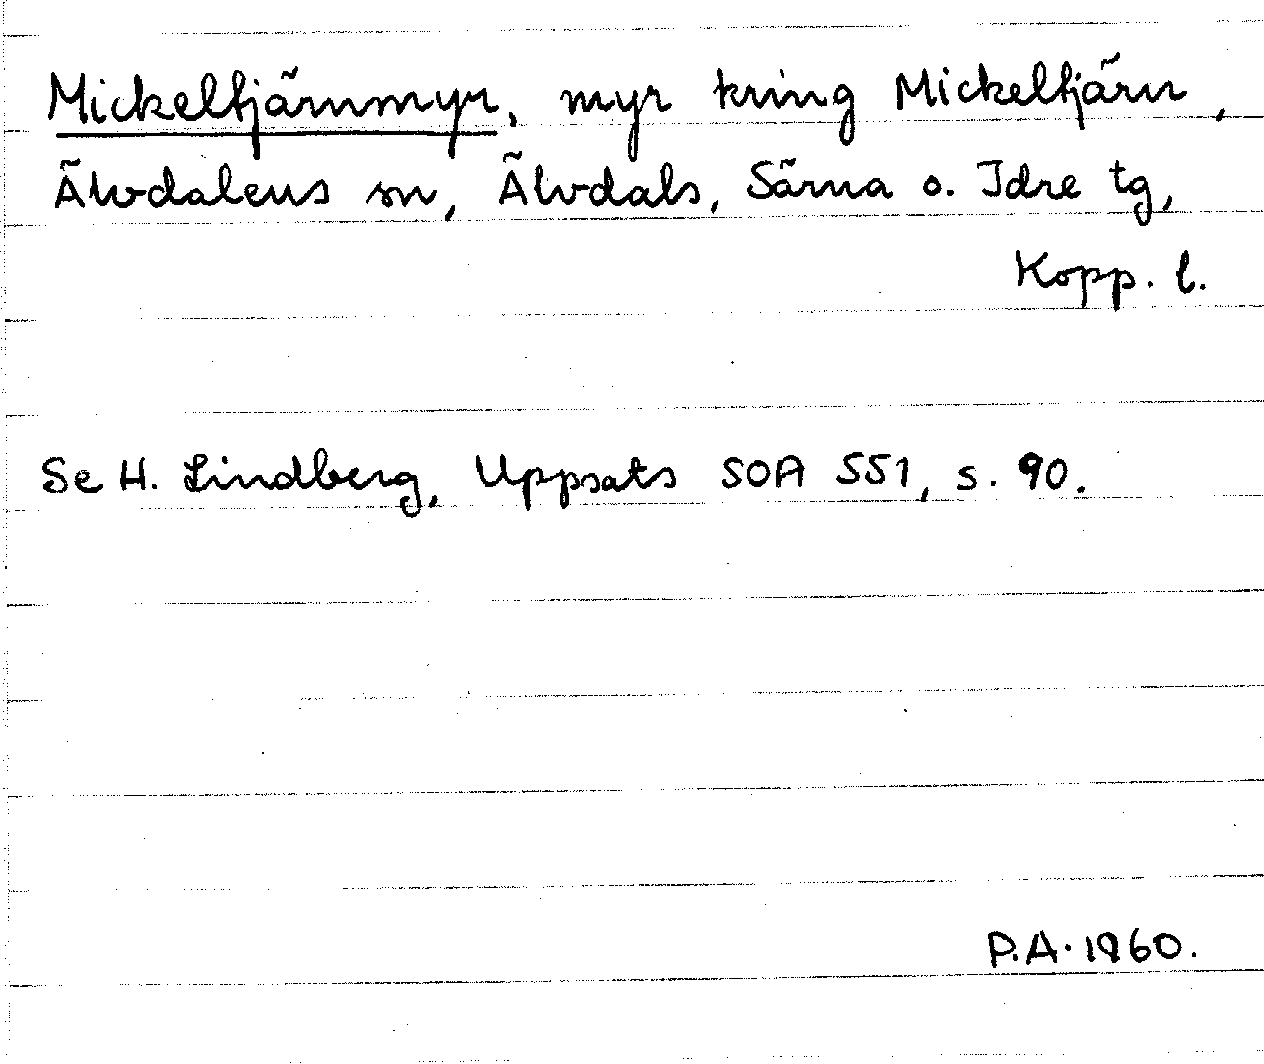 Mickeltjärnmyr, myr kring Mickeltjärn,
Älvdalens sn, Älvdals, Särna o. Idre tg,
Kopp. l.
Se H. Lindberg, Uppsats SOA 551, s. 90.
P.A. 1960.